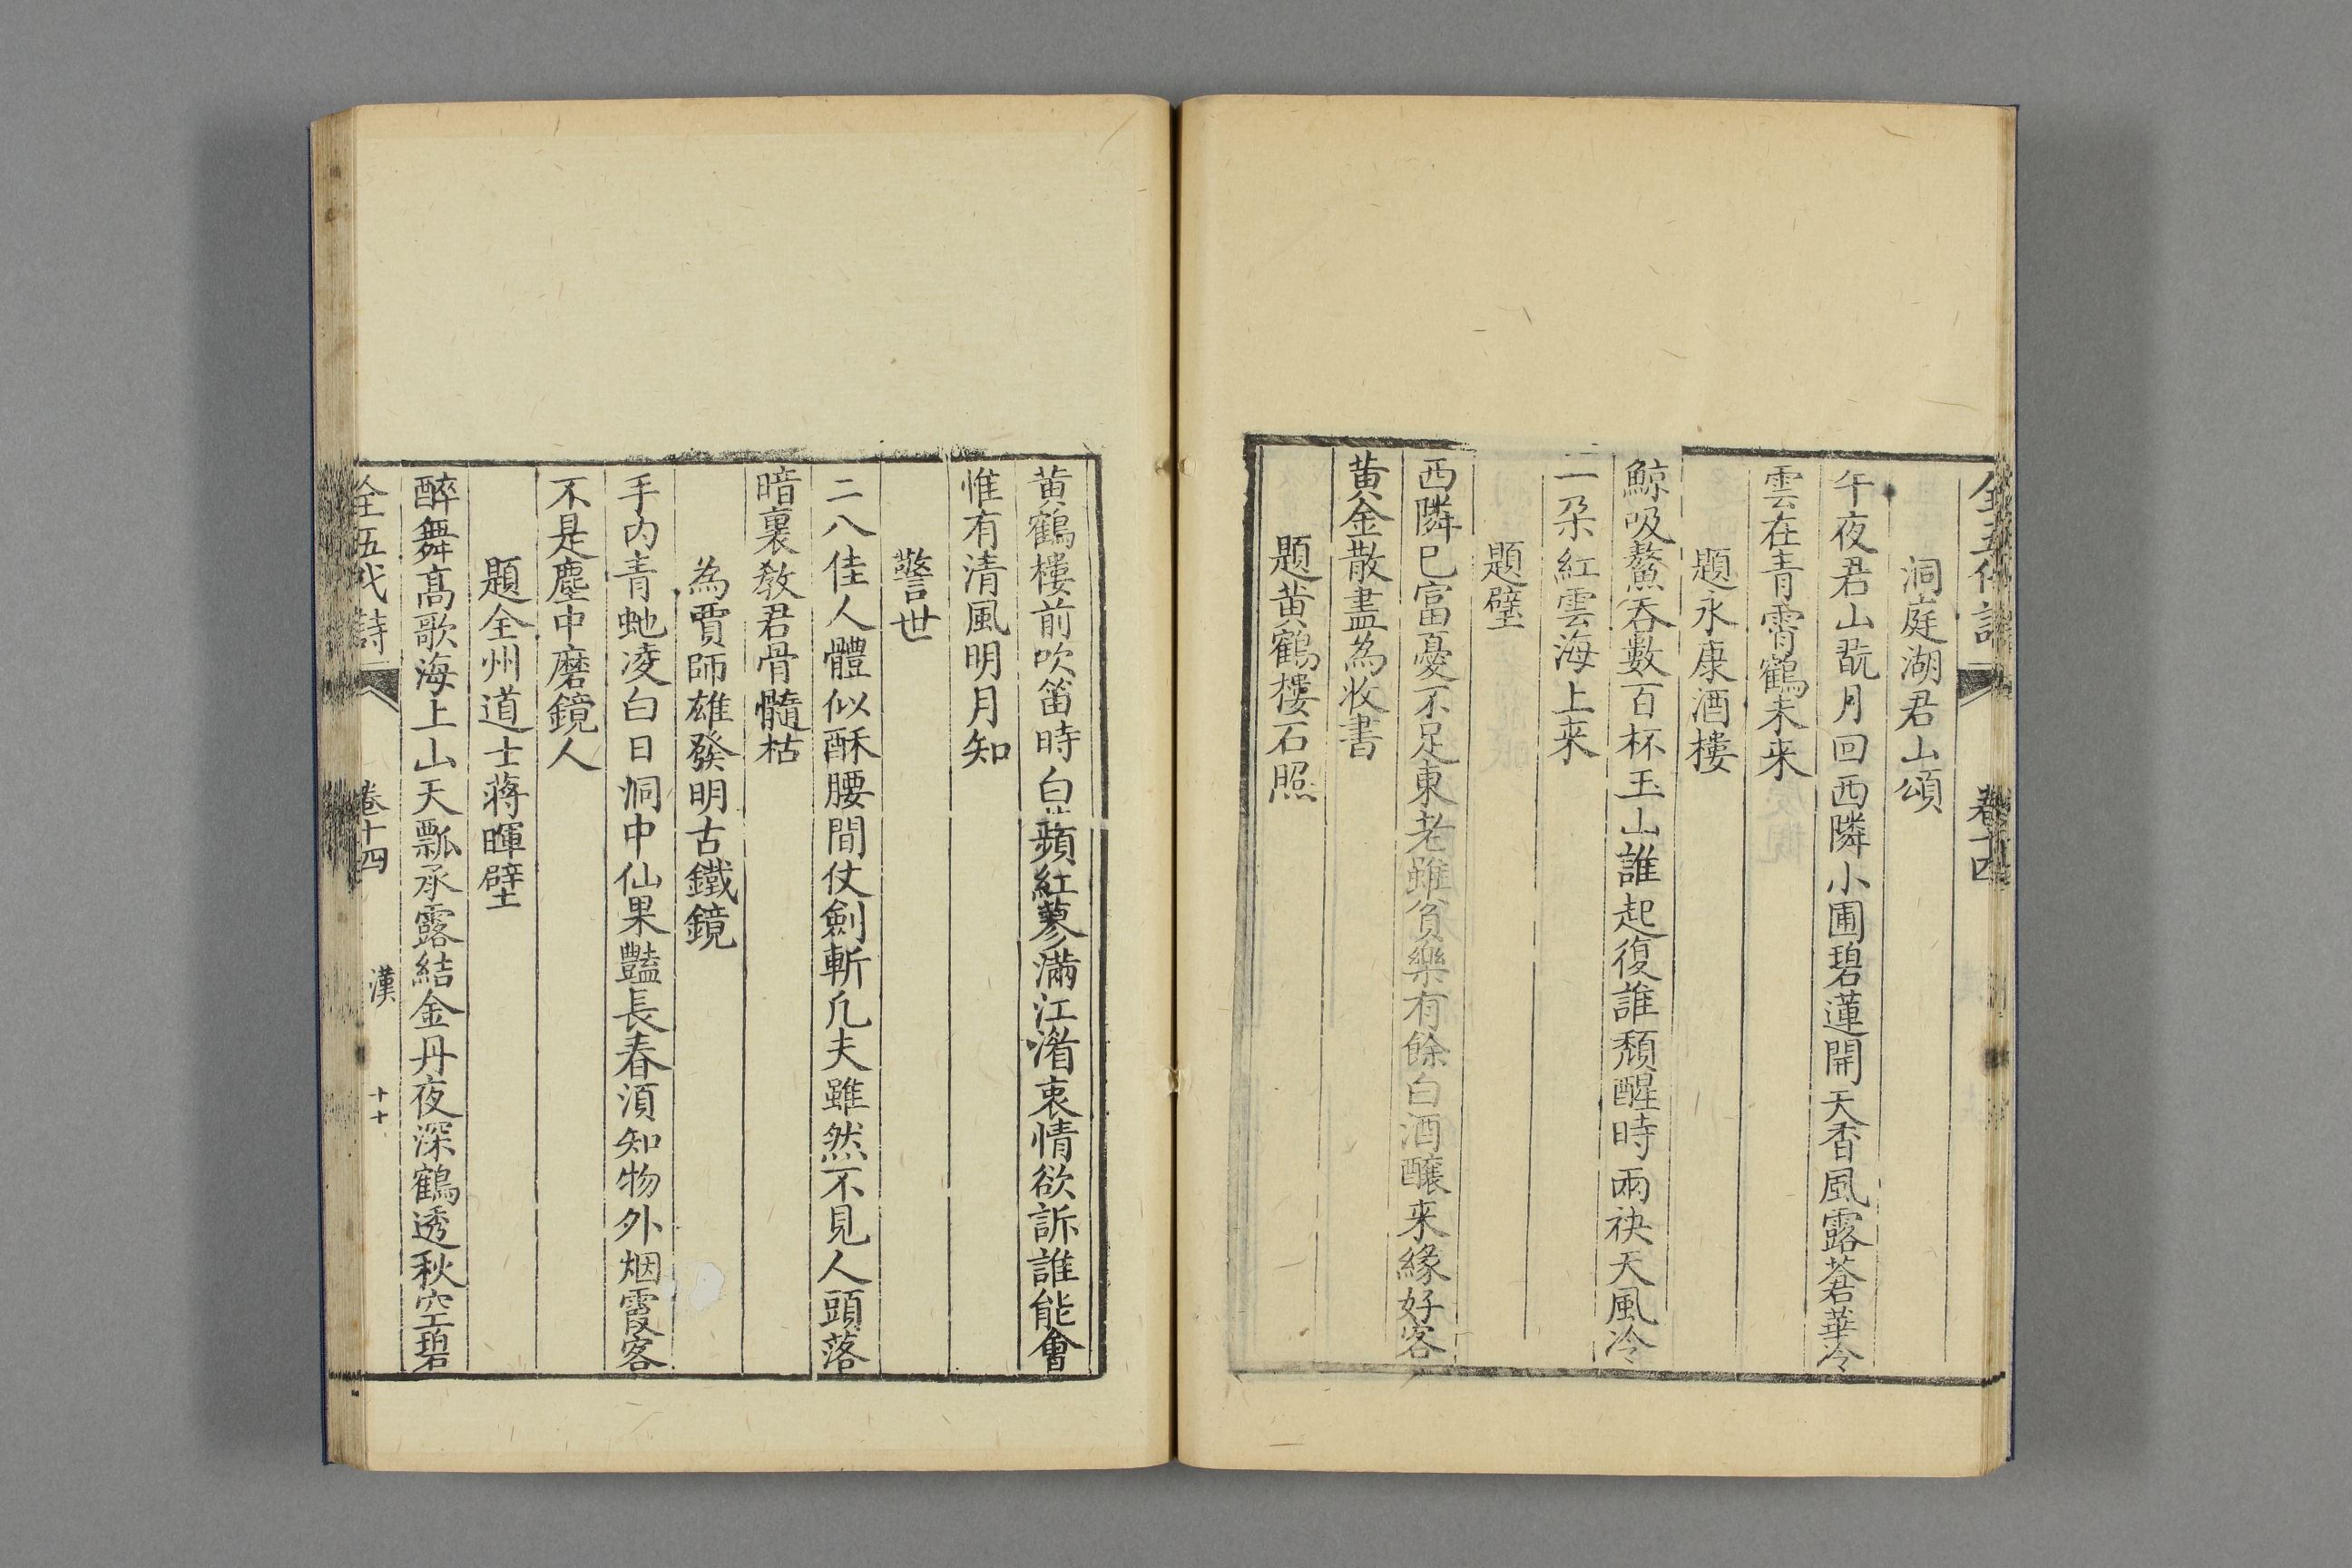 全五代詩 卷十四
洞庭湖君山頌
午夜君山翫月回西隣小圃碧蓮開天香風露蒼華冷
雲在青霄鶴未来
題永康酒樓
鯨吸鰲吞數百杯玉山誰起復誰頹醒時兩袂天風冷
一朵紅雲海上来
題壁
西隣已富憂不足東老雖貧樂有餘白酒釀来緣好客
黃金散盡為收書
題黃鶴樓石照
黃鶴樓前吹笛時白蘋紅蓼滿江湄衷情欲訴誰能會
惟有清風明月知
警世
二八佳人體似酥腰間仗劍斬凡夫雖然不見人頭落
暗裏教君骨髓枯
為賈師雄發明古鐵鏡
手內青虵凌白日洞中仙果豔長春須知物外烟霞客
不是塵中磨鏡人
題全州道士蔣暉壁
醉舞高歌海上山天瓢承露結金丹夜深鶴透秋空碧
全五代詩 卷十四 漢 十十